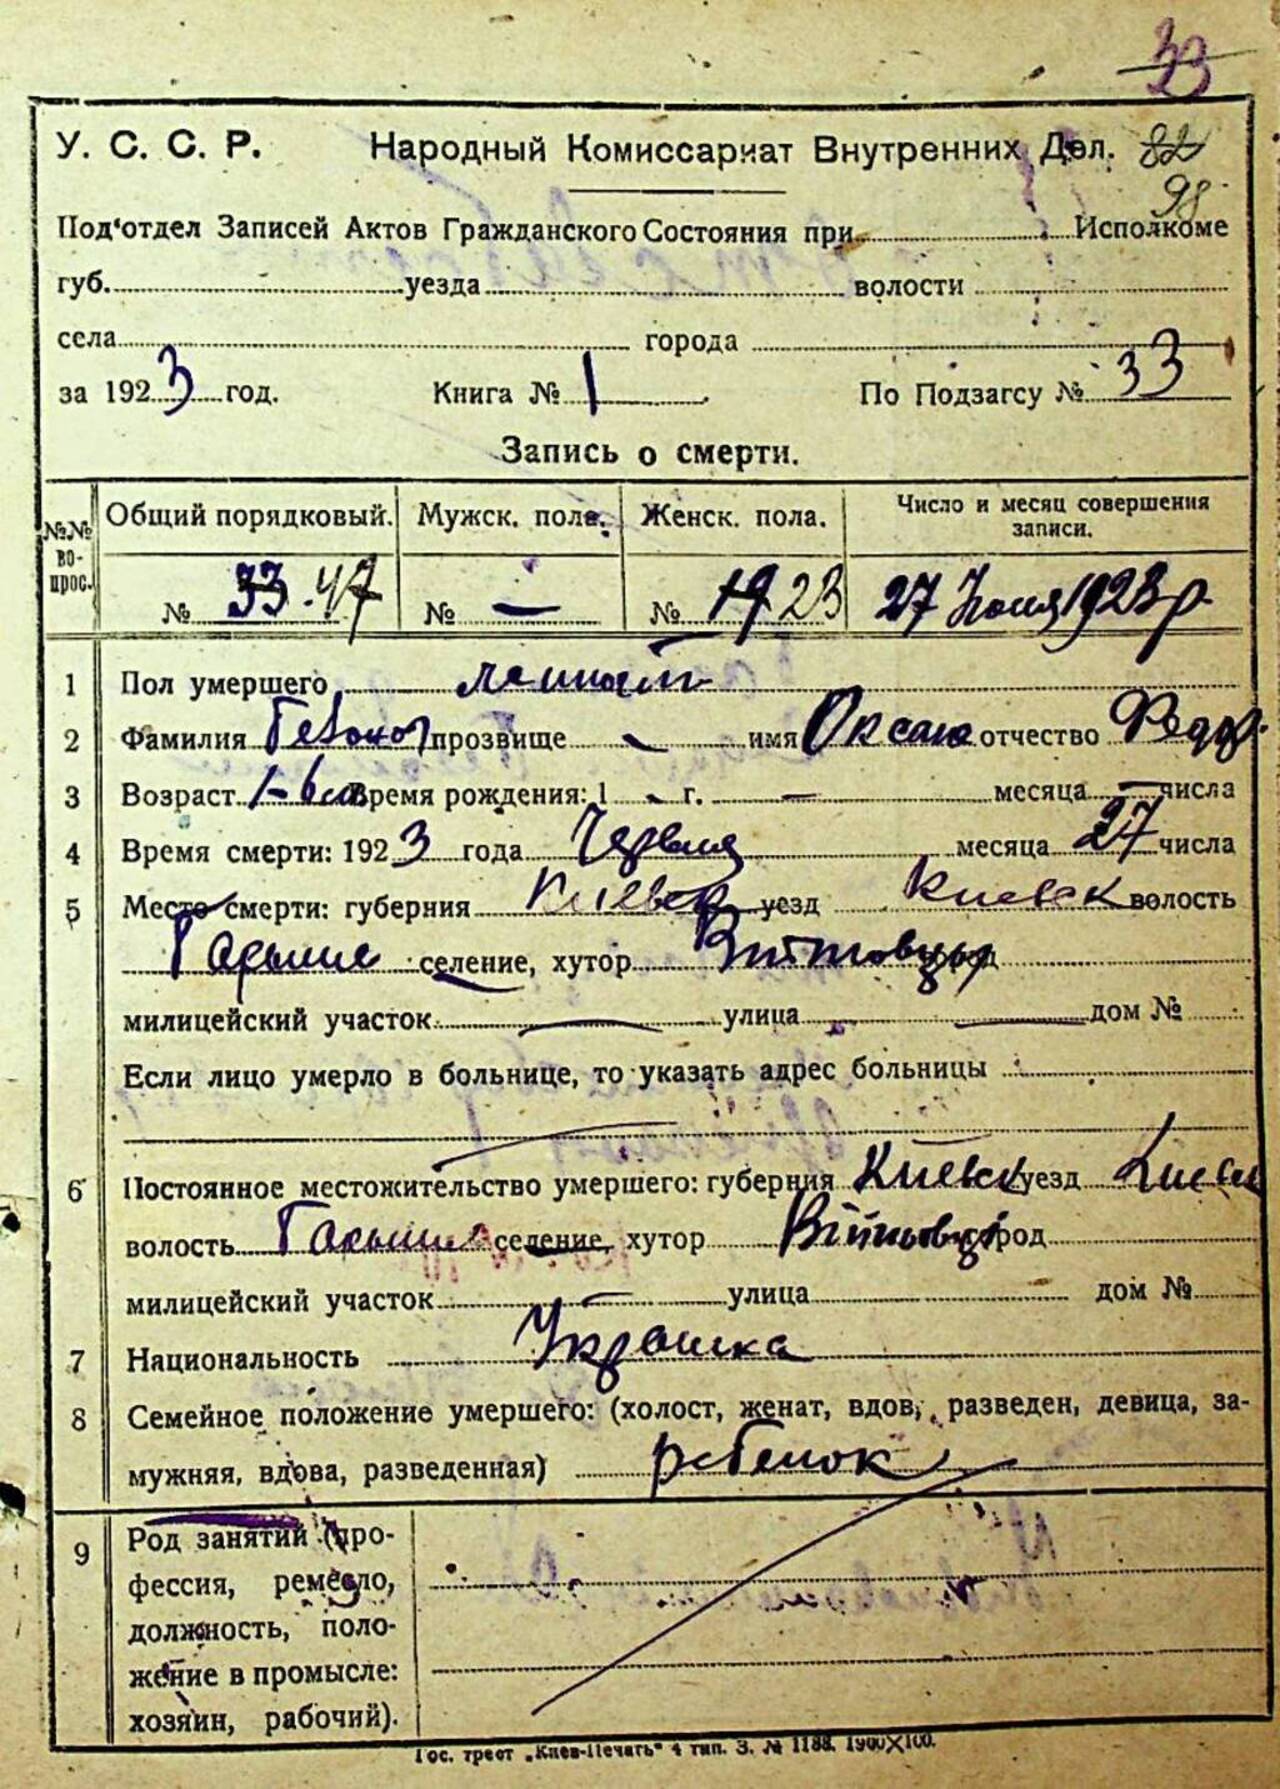 33
У. С. С. Р. Народный Комиссариат Внутренних Дел. 82
98
Под'отдел Записей Актов Гражданского Состояния при Исполкоме
губ. уезда волости
села города
за 1923 год. Книга № 1 По Подзагсу № 33
Запись о смерти.
№№ вопрос. Общий порядковый. Мужск. пола. Женск. пола. Число и месяц совершения записи.
№ 33. 47 № — № 19 23 27 Июня 1923 р.
1 Пол умершего
2 Фамилия прозвище - имя Оксана отчество Федор.
3 Возраст Время рождения: 1 - г. — месяца — числа
4 Время смерти: 1923 года Червня месяца 27 числа
5 Место смерти: губерния Киевск уезд Киевск волость
селение, хутор
милицейский участок — улица — дом №
Если лицо умерло в больнице, то указать адрес больницы
6 Постоянное местожительство умершего: губерния Київск уезд
волость селение, хутор город
милицейский участок — улица дом №
7 Национальность Українка
8 Семейное положение умершего: (холост, женат, вдов, разведен, девица, за-
мужняя, вдова, разведенная) ребенок
9 Род занятий (про-
фессия, ремесло,
должность, поло-
жение в промысле:
хозяин, рабочий).
Гос. трест „Киев-Печать" 4 тип. З. № 1188. 1900×100.